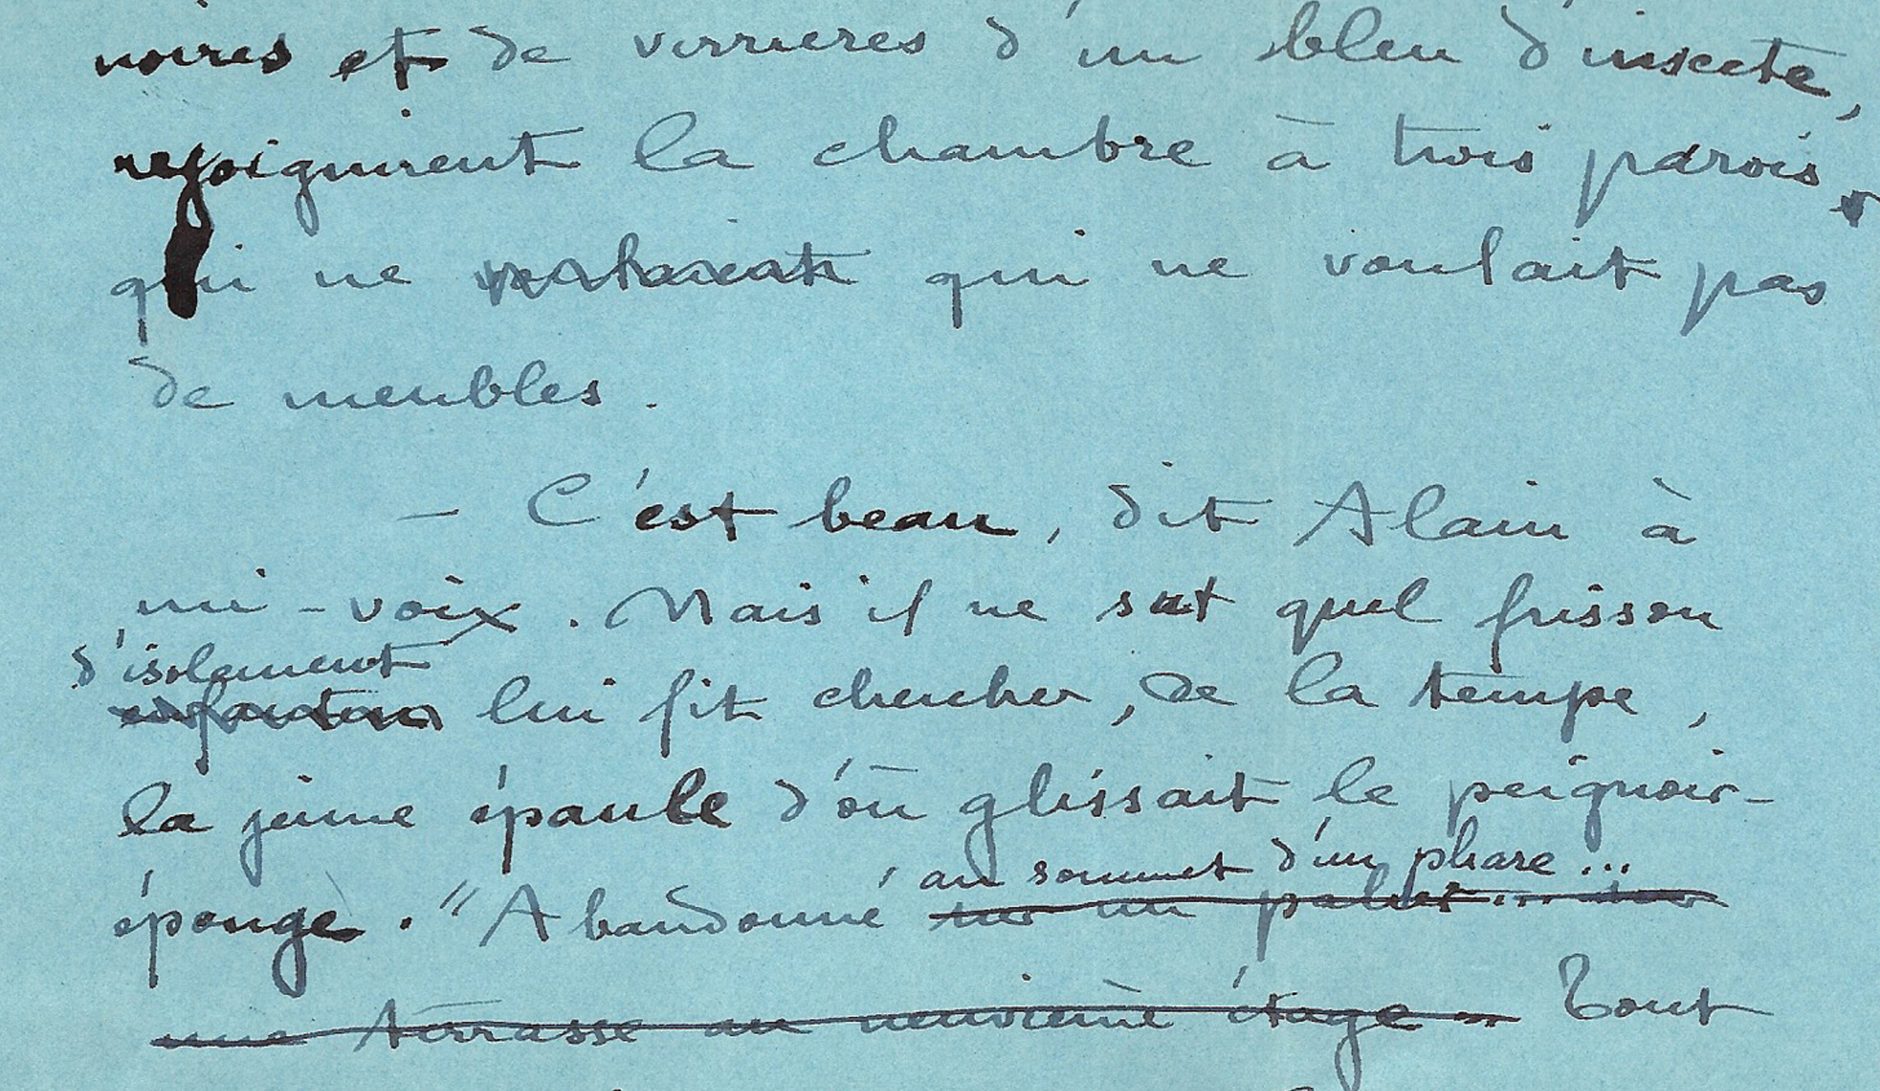 noires et de verrières d'un bleu d'insecte,
rejoignirent la chambre à trois parois
qui ne qui ne voulait pas
de meubles.
– C'est beau, dit Alain à
mi-voix. Mais il ne sut quel frisson
d'isolement
lui fit chercher, de la tempe,
la jeune épaule d'où glissait le peignoir-
au sommet d'un phare...
éponge. "Abandonné sur un palier... sur
une terrasse au neuvième étage... Tout